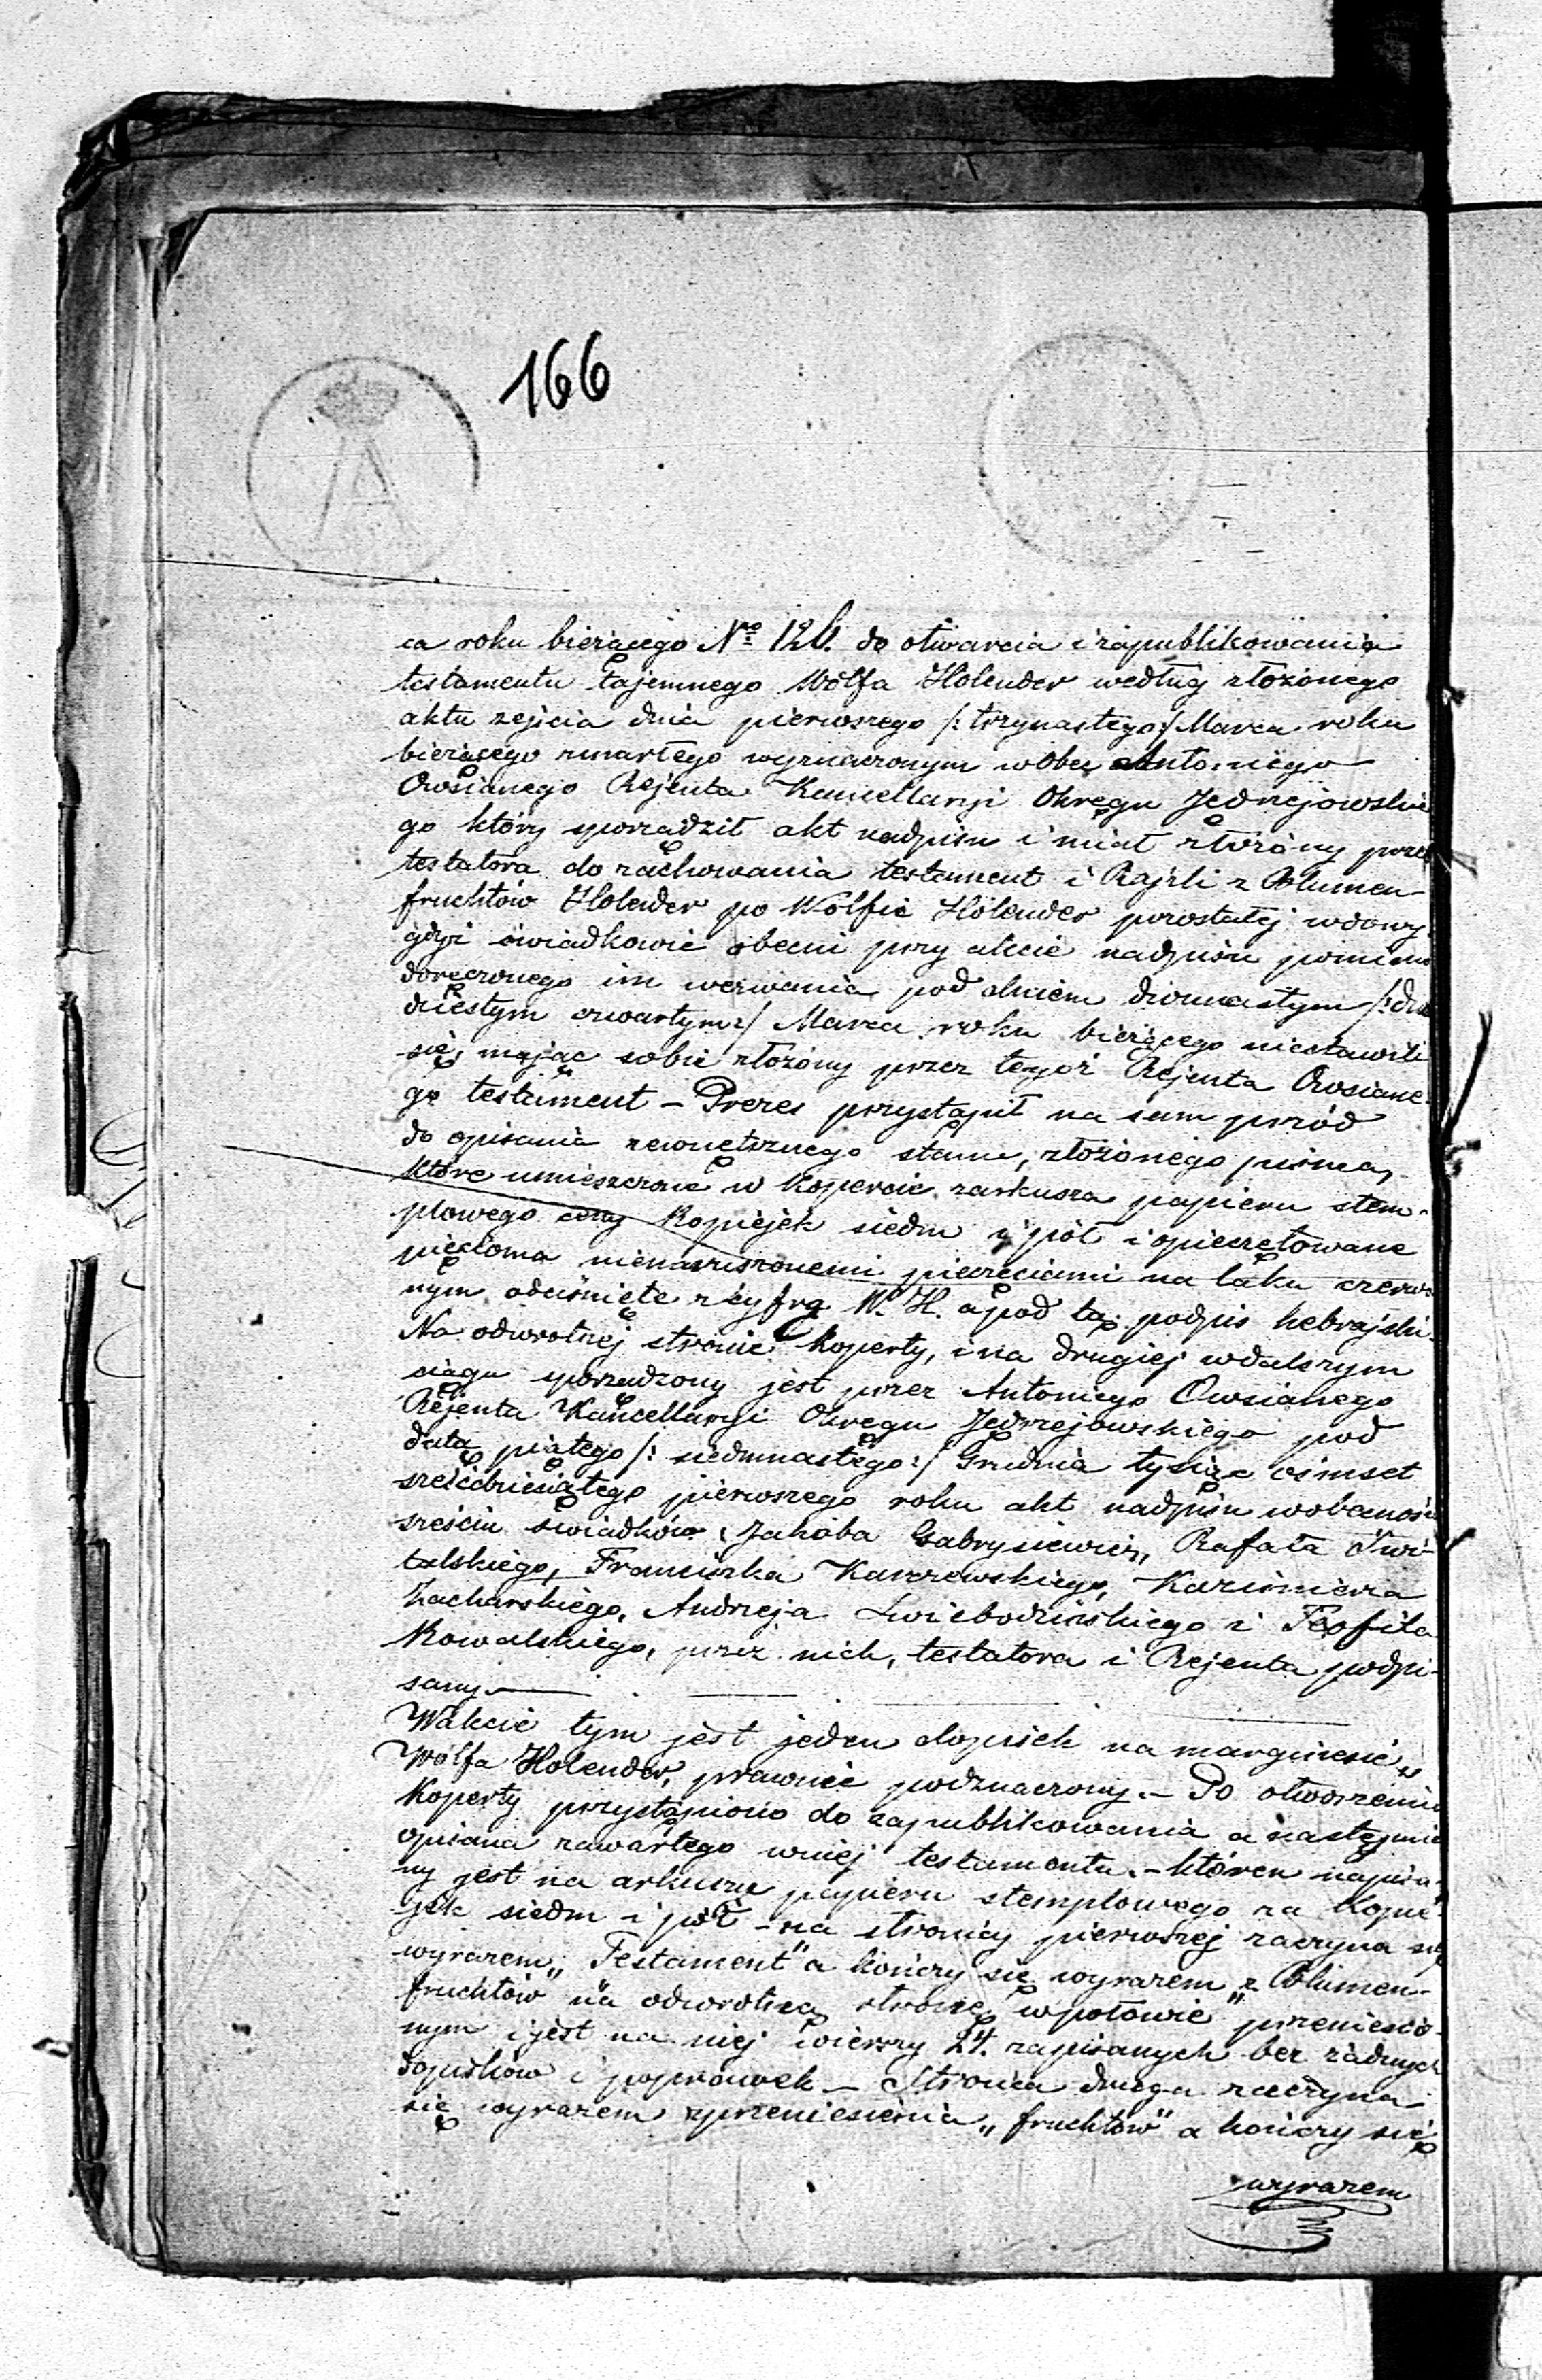 166
ca roku bieżącego No 126. do otwarcia i zapublikowania
testamentu tajemnego Wolfa Holender według złożonego
aktu zejścia dnia pierwszego /: trzynastego :/ Marca roku
bieżącego zmarłego wyznaczonym wobec Antoniego
Owsianego Rejenta Kancellaryi Okręgu Jędrzejowskie
go który sporządził akt nadpisu i miał złożony przez
testatora do zachowania testament i Rajzli z Blumen-
fruchtów Holender po Wolfie Holender pozostałej wdowy
gdyż świadkowie obecni przy akcie nadpisu pomimo
doręczonego im wezwania pod dniem dwunastym /: dwu
dziestym czwartym :/ Marca roku bieżącego niestawili
się, mając sobie złożony przez tegoż Rejenta Owsiane-
go testament – Prezes przystąpił na sam przód
do opisania zewnętrznego stanu, złożonego pisma,
które umieszczone w kopercie zarkusza papieru stem-
plowego ceny kopiejek siedm i pół i opieczętowane
pięcioma nienaruszonemi pieczęciami na laku czerwo-
nym odciśnięte z cyfrą W. H. a pod tą podpis hebrajski.
Na odwrotnej stronie koperty, i na drugiej wdalszym
ciągu sporządzony jest przez Antoniego Owsianego
Rejenta Kancellaryi Okręgu Jędrzejowskiego pod
datą piątego /: siedmnastego :/ Grudnia tysiąc ośmset
sześćdziesiątego pierwszego roku akt nadpisu wobecności
sześciu świadków, Jakóba Gabrysiewicz, Rafała
talskiego, Franciszka Karczewskiego, Kazimierza
Zacharskiego, Andrzeja Świebodzińskiego i Teofila
Kowalskiego, przez nich, testatora i Rejenta podpi-
sany. –
Wakcie tym jest jeden dopisek na marginesie „
Wolfa Holender, prawnie podznaczony. – Po otworzeniu
koperty przystąpiono do zapublikowania a następnie
opisania zawartego wniej testamentu. – któren napisa-
ny jest na arkuszu papieru stemplowego za kopie-
jek siedm i pół – na stronicy pierwszej zaczyna się
wyrazem „Testament" a kończy się wyrazem „z Blumen-
fruchtów" na odwrotną stronę wpołowie przeniesio-
nym i jest na niej wierszy 24. zapisanych bez żadnych
dopisków i poprawek – Stronica druga zaczyna
się wyrazem zprzeniesienia „fruchtów" a kończy się
wyrazem